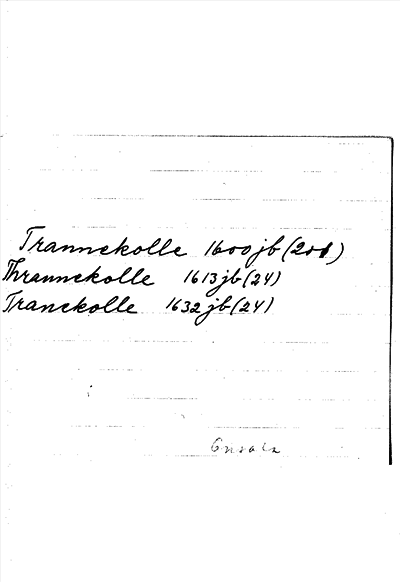 Trannekolle 1600 jb (201)
Thrannekolle 1613 jb (24)
Tranekolle 1632 jb (24)